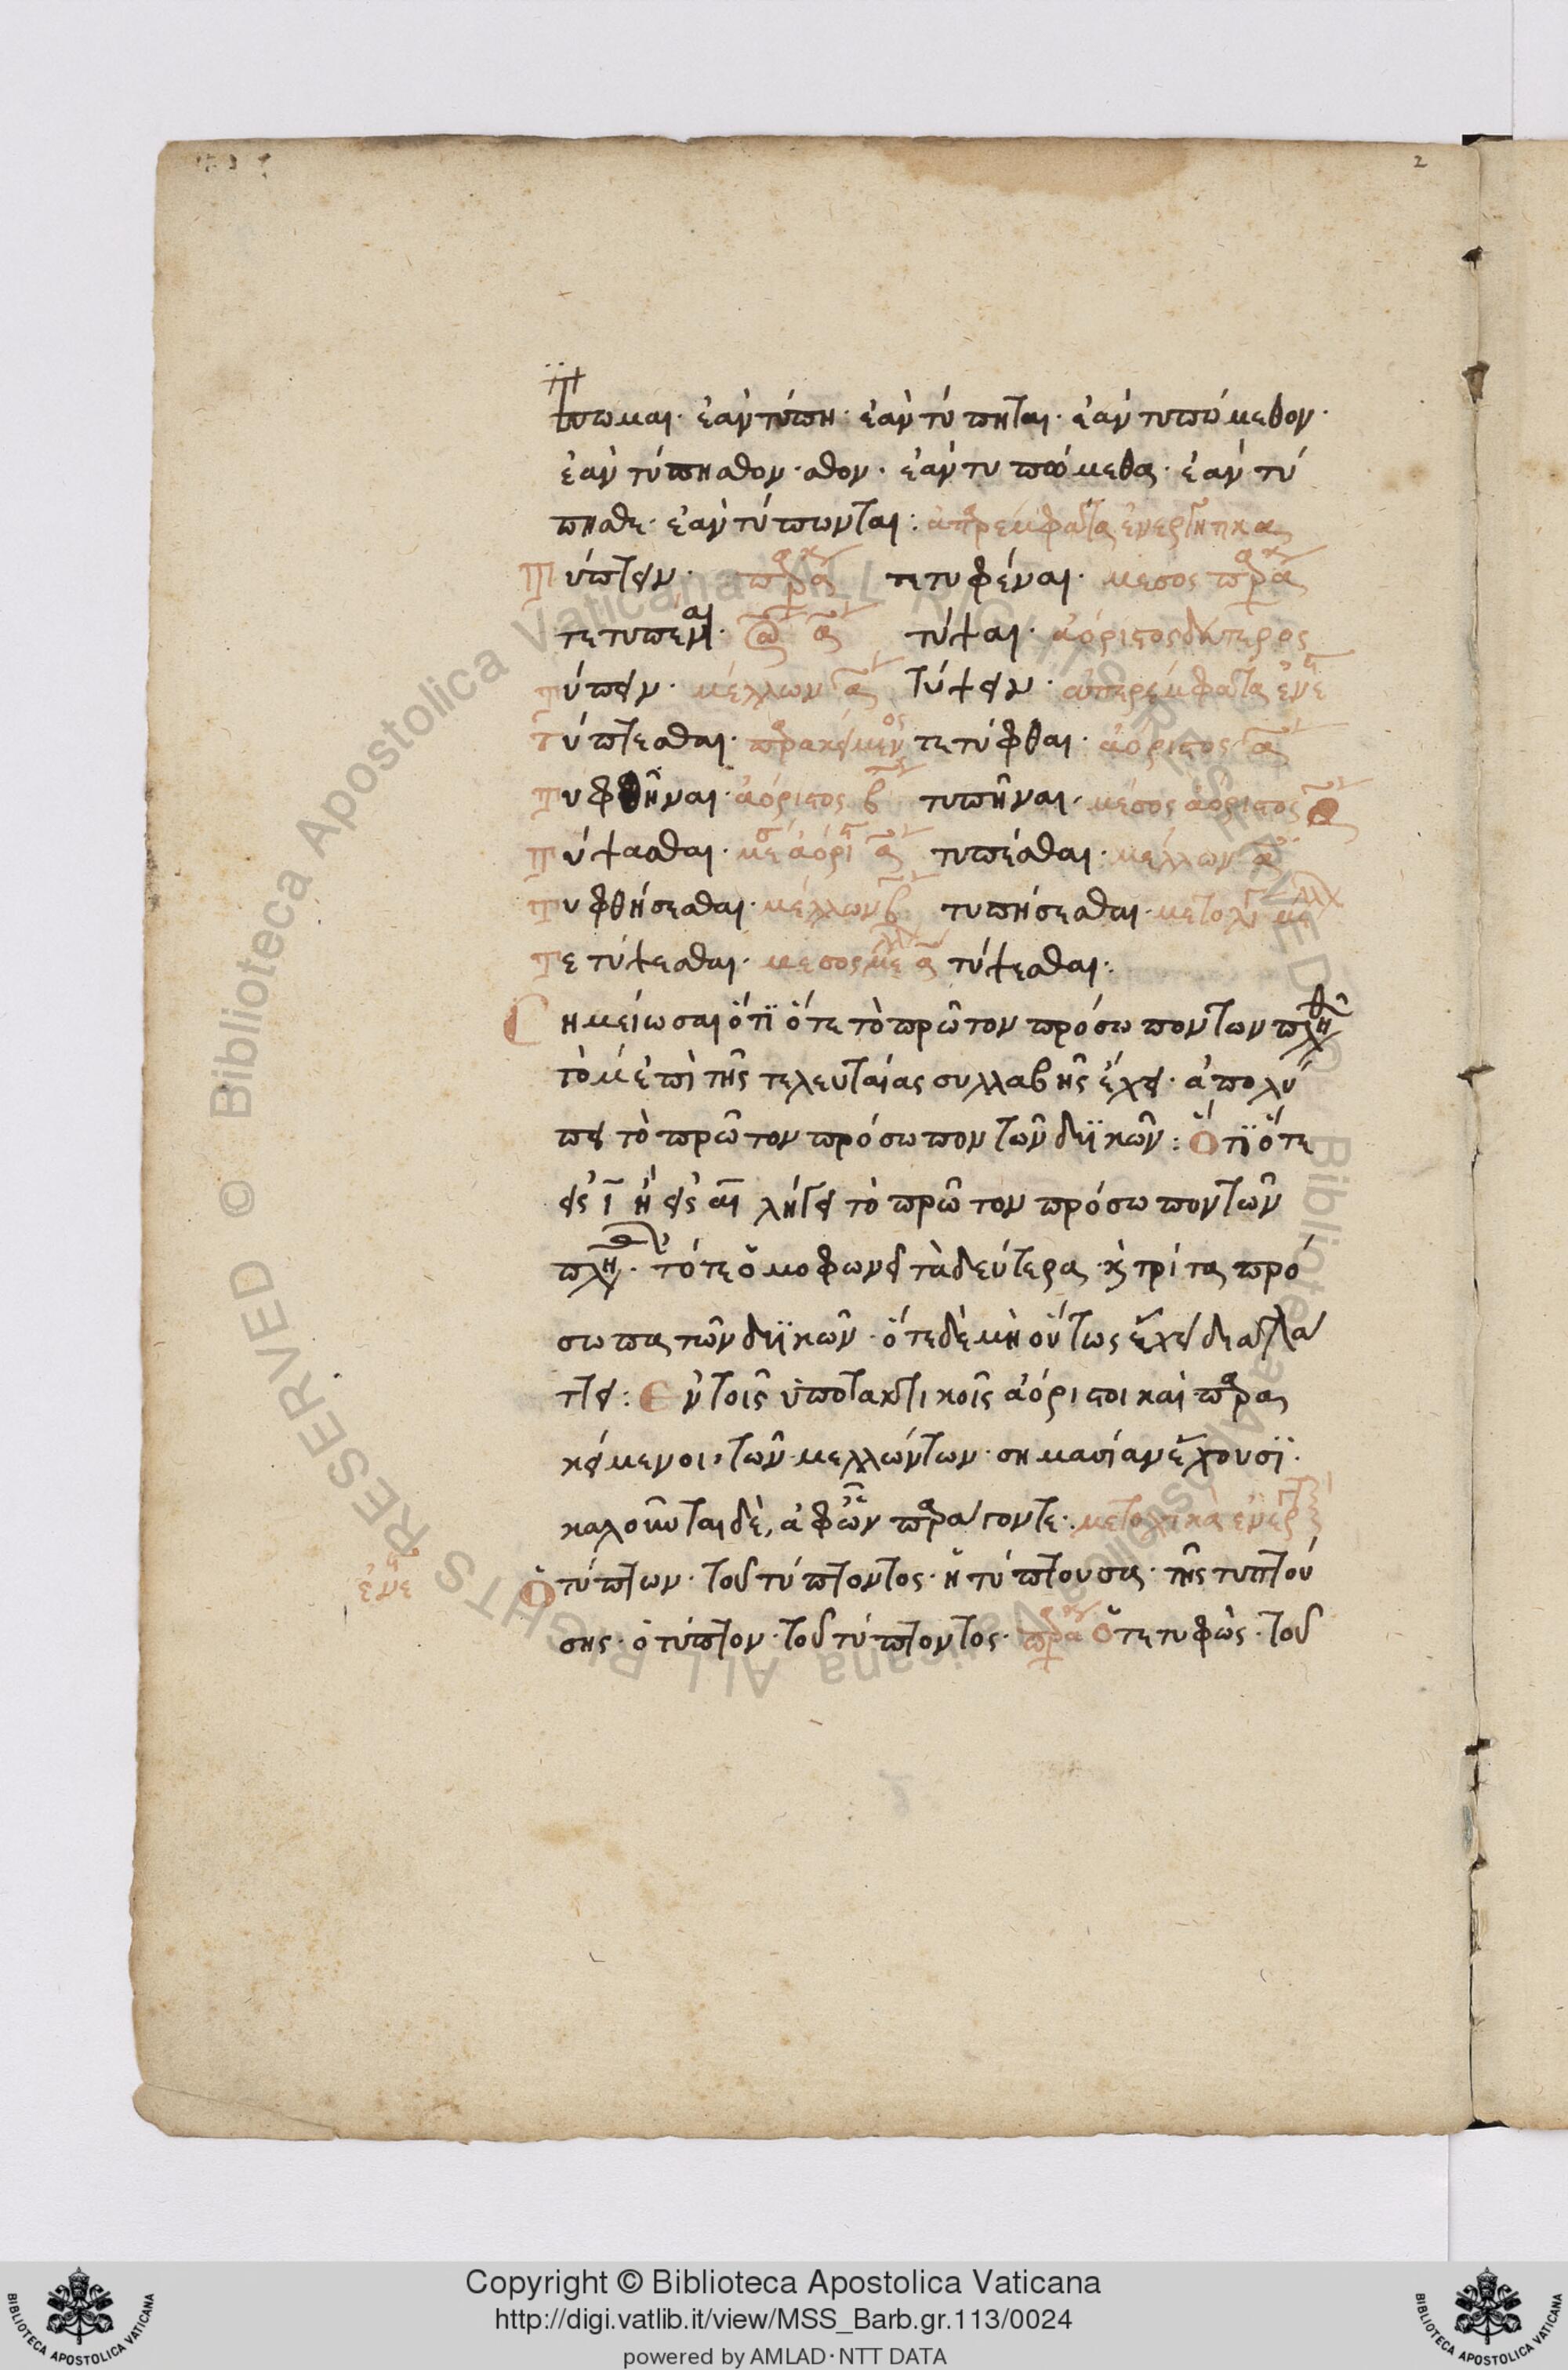 2
τυπωμαι· ἐὰν τύπη· ἐὰν τύπηται· ἐὰν τυπώμεθον·
ἐὰν τύπησθον· σθον· ἐὰν τυπώμεθα· ἐὰν τύ
πησθε· ἐὰν τύπωνται: ἀπρεμφατα ἐνεργητηκα
Τύπτειν· παρακ τετυφέναι· μεσος παρακ
τετυπέναι· α τύψαι· ἀόριστος δευτερος
τύπειν· μέλλων α τύψειν· ἀπερέμφατα ἐνε
τύπτεσθαι· παρακείμενος τετύφθαι· ἀόριστος α
Τυφθῆναι· ἀόριστος β τυπῆναι· μέσος ἀόριστος α
Τύψασθαι· με ἀόρι α τυπέσθαι· μέλλων α
Τυφθήσεσθαι· μέλλων β τυπήσεσθαι· μετολι με
Τετύψεσθαι· μεσος με α τύψεσθαι:
Σημείωσαι ὅτι ὅτε τὸ πρῶτον πρόσωπον των πληθ
τὸ μ ἐπὶ τῆς τελευταίας συλλαβῆς ἔχει· ἀπολύ
πει τὸ πρῶτον πρόσωπον τῶν δυϊκῶν: Ὅτι ὅτε
εἰς ι ἢ εἰς αι λήγει τὸ πρῶτον πρόσωπον τῶν
πλη· τότε ὁμοφωνεῖ τὰ δεύτερα κ τρίτα πρό
σωπα τῶν δυϊκῶν· ὅτε δὲ μὴ οὕτως ἔχει διαλλά
ττει: Ἐν τοῖς ὑποτακτικοῖς ἀόριστοι καὶ παρα
κείμενοι, τῶν μελλώντων· σημασίαν ἔχουσι·
καλοῦνται δὲ, ἀφ ὧν παράγονται: μετοχικὰ ἐνερ
ἐνε Ὁ τύπτων· τοῦ τύπτοντος· ἡ τύπτουσα· τῆς τυπτού
σης· ὁ τύπτον· τοῦ τύπτοντος· παρακ ὁ τετυφὼς· τοῦ
Copyright © Biblioteca Apostolica Vaticana
http://digi.vatlib.it/view/MSS_Barb.gr.113/0024
powered by AMLAD·NTT DATA